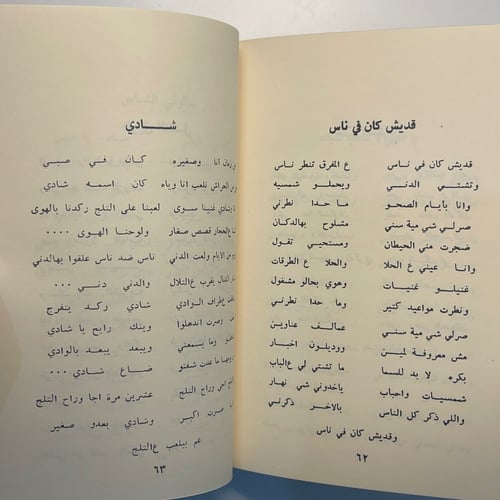 قديش كان في ناس
قديش كان في ناس ع المفرق تنطر ناس
وتشتي الدني ويحملو شمسيه
وانا بأيام الصحو ما حدا نطرني
صرلي شي مية سني مشلوح بهالدكان
ضجرت مني الحيطان ومستحيي تقول
وانا عيني ع الحلا والحلا ع الطرقات
غنيلو غنيات وهوي بحالو مشغول
ونطرت مواعيد كتير وما حدا نطرني
صرلي شي مية سني عمالف عناوين
مش معروفة لمين ووديلون اخبار
بكره لا بد للسما ما تشتي لي ع الباب
شمسيات واحباب ياخدوني شي نهار
واللي ذكر كل الناس بالاخر ذكرني
وقديش كان في ناس
٦٢
شادي
من زمان انا وصغيره كان في صبي
من الحراش نلعب انا وياه كان اسمه شادي
وشادي غنينا سوى لعبنا على التلج ركدنا بالهوى
ع الحجار قصص صغار ولوحنا الهوى ....
من الايام ولعت الدني ناس ضد ناس علقوا بهالدني
القتال يقرب ع التلال والدني دني ...
طراف الوادي شادي ركد يتفرج
وصرت اندهلوا وينك رايح يا شادي
وما يسمعني ويبعد يبعد بالوادي
ما عدت شفتو ضاع شادي ...
اجى وراح التلج عشرين مرة اجا وراح التلج
صرت اكبر وشادي بعدو صغير
عم بيلعب ع التلج
٦٣